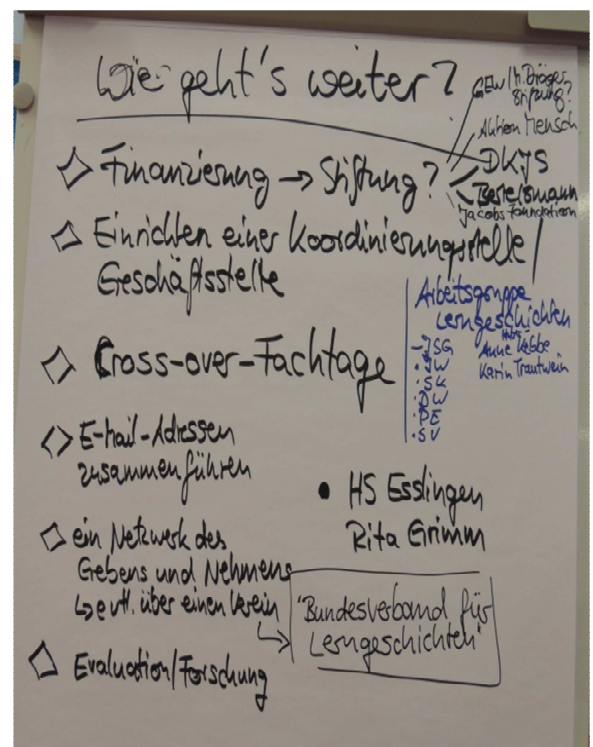 Wie geht's weiter?
GEW / M. Dräger-
Stiftung?
Aktion Mensch
DKJS
Bertelsmann
Jacobs Foundation
Finanzierung → Stiftung?
Einrichten einer Koordinierungsstelle /
Geschäftsstelle
Arbeitsgruppe
Lerngeschichten
- JSG
· JW
· SK
· DW
· PE
· SV
Anne Kebbe
Karin Trautwein
Cross-over-Fachtage
E-Mail-Adressen
zusammenführen
• HS Esslingen
Rita Grimm
ein Netzwerk des
Gebens und Nehmens
↳ evtl. über einen Verein
"Bundesverband für
Lerngeschichten"
Evaluation/Forschung